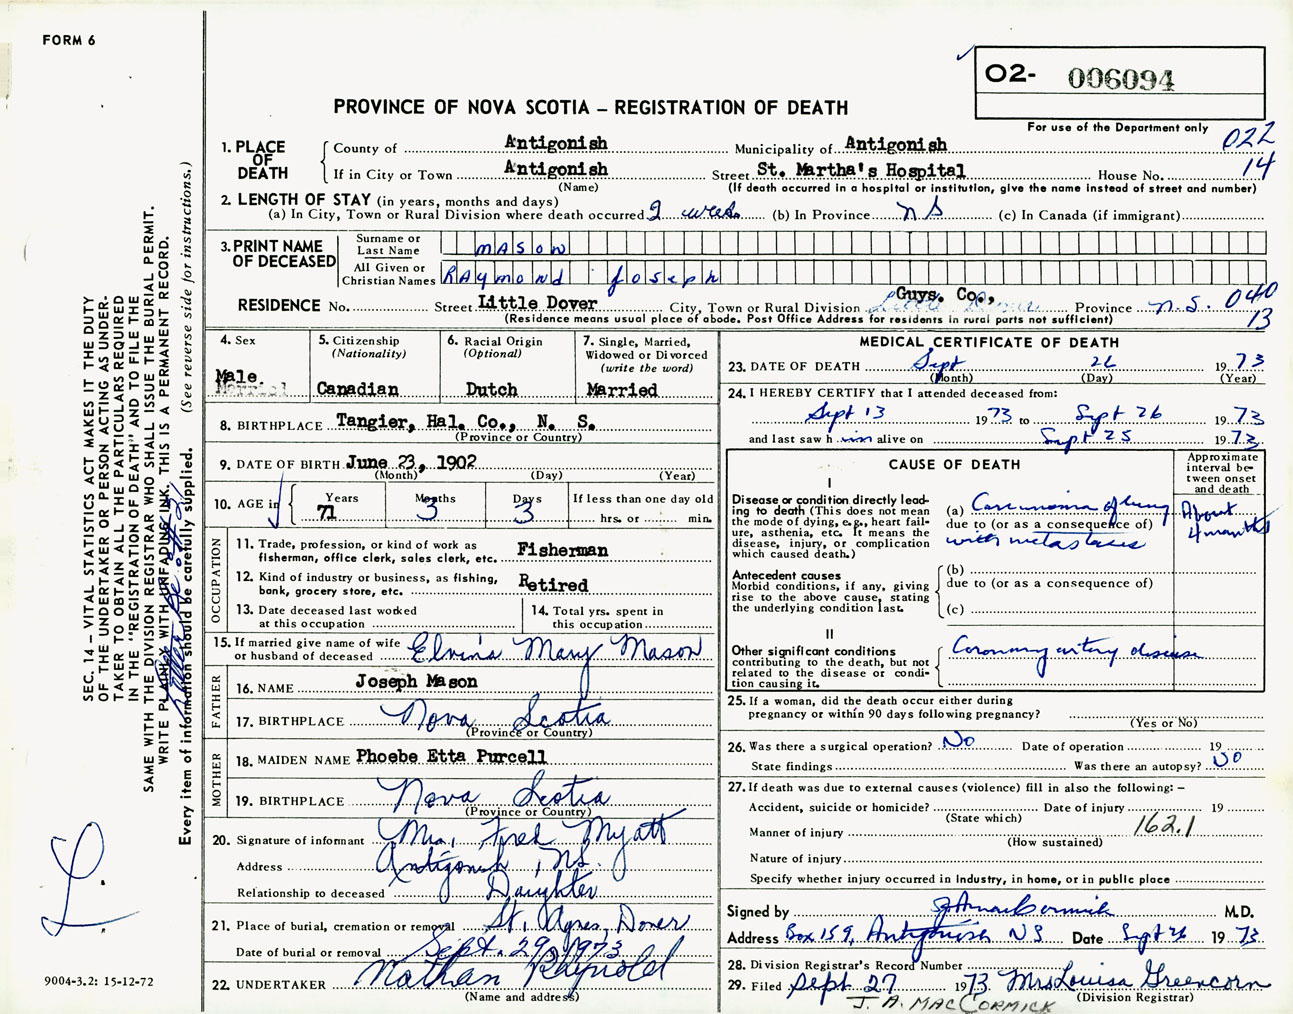 FORM 6
O2- 006094
PROVINCE OF NOVA SCOTIA – REGISTRATION OF DEATH
For use of the Department only
022
14
1. PLACE OF DEATH
County of Antigonish Municipality of Antigonish
If in City or Town Antigonish Street St. Martha's Hospital House No.
(Name) (If death occurred in a hospital or institution, give the name instead of street and number)
2. LENGTH OF STAY (in years, months and days)
(a) In City, Town or Rural Division where death occurred 2 weeks (b) In Province NS (c) In Canada (if immigrant)
3. PRINT NAME OF DECEASED
Surname or Last Name MASON
All Given or Christian Names RAymond Joseph
RESIDENCE No. Street Little Dover City, Town or Rural Division Guys. Co., Province N.S. 040
13
(Residence means usual place of abode. Post Office Address for residents in rural parts not sufficient)
4. Sex
Male
5. Citizenship (Nationality)
Canadian
6. Racial Origin (Optional)
Dutch
7. Single, Married, Widowed or Divorced (write the word)
Married
8. BIRTHPLACE Tangier, Hal. Co., N. S.
(Province or Country)
9. DATE OF BIRTH June 23, 1902
(Month) (Day) (Year)
10. AGE in
Years 71
Months 3
Days 3
If less than one day old
hrs. or min.
OCCUPATION
11. Trade, profession, or kind of work as fisherman, office clerk, sales clerk, etc. Fisherman
12. Kind of industry or business, as fishing, bank, grocery store, etc. Retired
13. Date deceased last worked at this occupation
14. Total yrs. spent in this occupation
15. If married give name of wife or husband of deceased Elvina Mary Mason
FATHER
16. NAME Joseph Mason
17. BIRTHPLACE Nova Scotia
(Province or Country)
MOTHER
18. MAIDEN NAME Phoebe Etta Purcell
19. BIRTHPLACE Nova Scotia
(Province or Country)
20. Signature of informant Mrs. Fred Myatt
Address Antigonish, NS.
Relationship to deceased Daughter
21. Place of burial, cremation or removal St. Agnes, Dover
Date of burial or removal Sept. 29, 1973
22. UNDERTAKER Nathan Raynold
(Name and address)
MEDICAL CERTIFICATE OF DEATH
23. DATE OF DEATH Sept 26 1973
(Month) (Day) (Year)
24. I HEREBY CERTIFY that I attended deceased from:
Sept 13 1973 to Sept 26 1973
and last saw him alive on Sept 25 1973
CAUSE OF DEATH
Approximate interval between onset and death
I
Disease or condition directly leading to death (This does not mean the mode of dying, e.g., heart failure, asthenia, etc. It means the disease, injury, or complication which caused death.)
(a) Carcinoma of lung
due to (or as a consequence of)
with metastases
About 4 months
Antecedent causes
Morbid conditions, if any, giving rise to the above cause, stating the underlying condition last.
(b)
due to (or as a consequence of)
(c)
II
Other significant conditions contributing to the death, but not related to the disease or condition causing it.
Coronary artery disease
25. If a woman, did the death occur either during pregnancy or within 90 days following pregnancy?
(Yes or No)
26. Was there a surgical operation? No Date of operation 19
State findings Was there an autopsy? No
27. If death was due to external causes (violence) fill in also the following: –
Accident, suicide or homicide? Date of injury 19
(State which)
Manner of injury 162.1
(How sustained)
Nature of injury
Specify whether injury occurred in industry, in home, or in public place
Signed by J A MacCormick M.D.
Address Box 159, Antigonish NS Date Sept 26 1973
28. Division Registrar's Record Number
29. Filed Sept 27 1973 Mrs Louisa Greencorn
(Division Registrar)
J. A. MACCORMICK
SEC. 14 – VITAL STATISTICS ACT MAKES IT THE DUTY
OF THE UNDERTAKER OR PERSON ACTING AS UNDER-
TAKER TO OBTAIN ALL THE PARTICULARS REQUIRED
IN THE "REGISTRATION OF DEATH" AND TO FILE THE
SAME WITH THE DIVISION REGISTRAR WHO SHALL ISSUE THE BURIAL PERMIT.
WRITE PLAINLY WITH UNFADING INK. THIS IS A PERMANENT RECORD.
Every item of information should be carefully supplied. (See reverse side for instructions.)
9004-3.2: 15-12-72